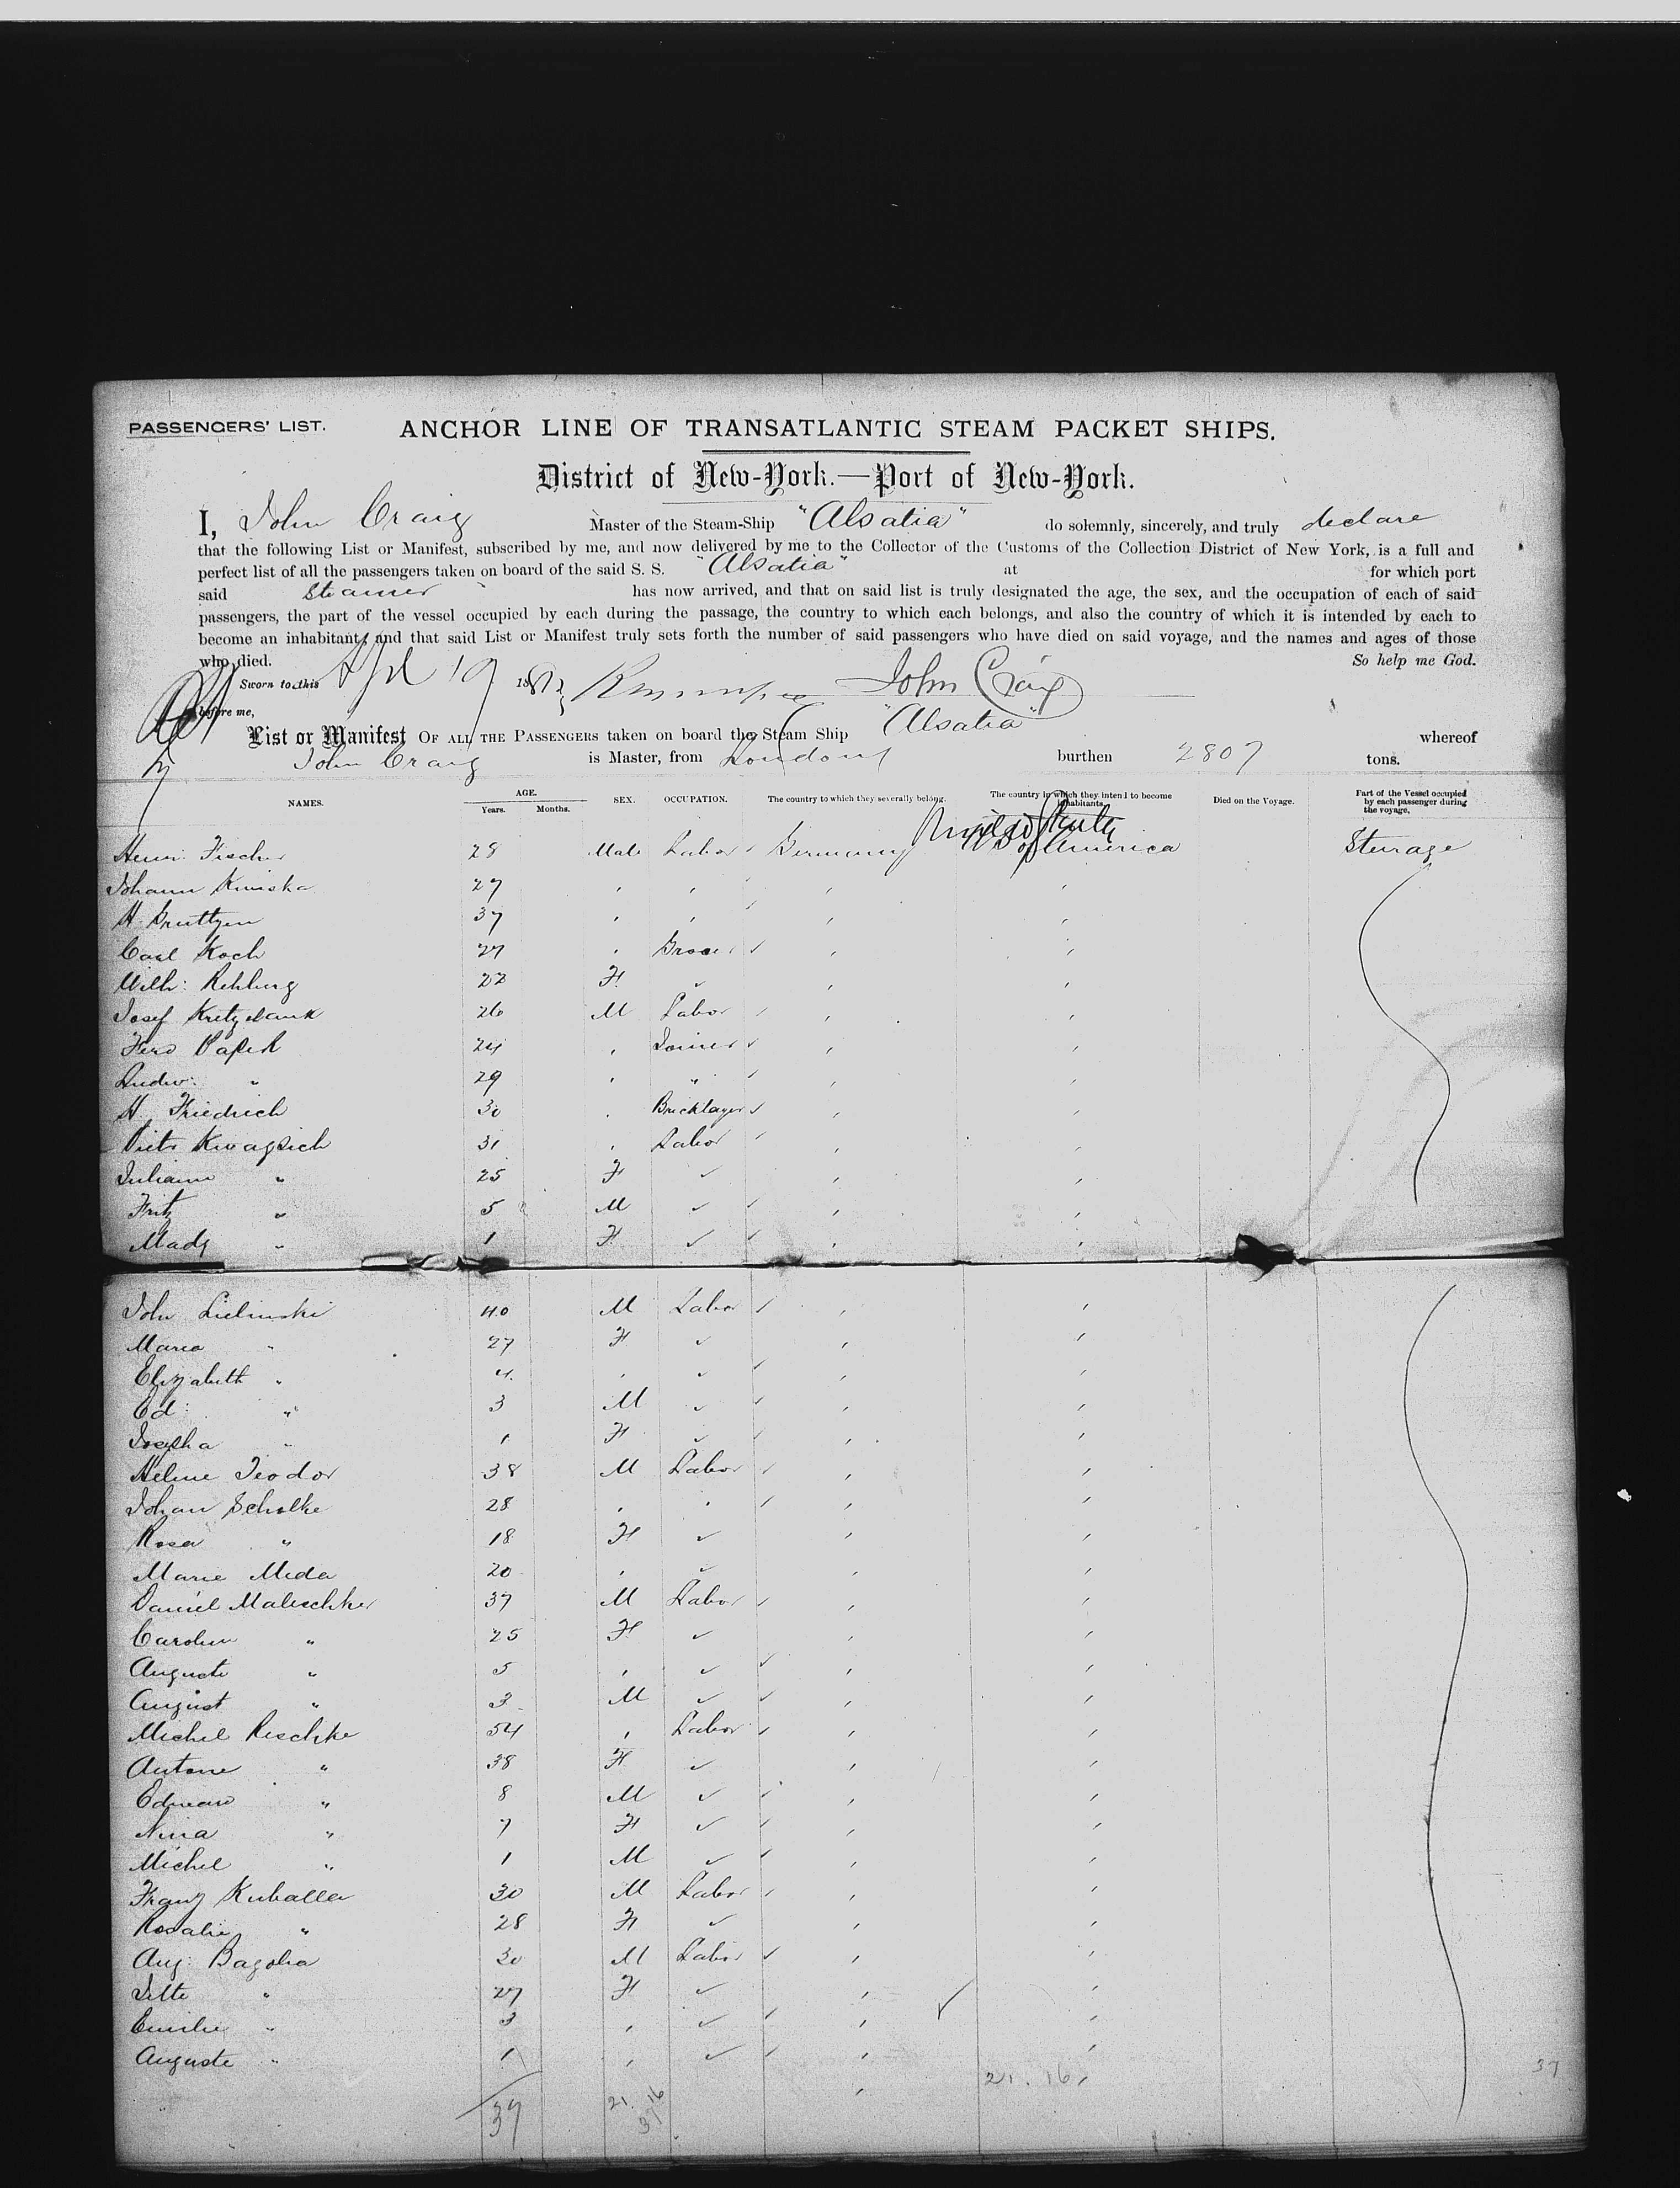 PASSENGERS' LIST. ANCHOR LINE OF TRANSATLANTIC STEAM PACKET SHIPS.
District of New-York.—Port of New-York.
I, John Craig Master of the Steam-Ship "Alsatia" do solemnly, sincerely, and truly declare
that the following List or Manifest, subscribed by me, and now delivered by me to the Collector of the Customs of the Collection District of New York, is a full and
perfect list of all the passengers taken on board of the said S. S. "Alsatia" at for which port
said Steamer has now arrived, and that on said list is truly designated the age, the sex, and the occupation of each of said
passengers, the part of the vessel occupied by each during the passage, the country to which each belongs, and also the country of which it is intended by each to
become an inhabitant, and that said List or Manifest truly sets forth the number of said passengers who have died on said voyage, and the names and ages of those
who died. So help me God.
Sworn to this 19 188 John Craig
before me,
List or Manifest OF ALL THE PASSENGERS taken on board the Steam Ship "Alsatia" whereof
John Craig is Master, from London burthen 2807 tons.
NAMES. AGE. Years. Months. SEX. OCCUPATION. The country to which they severally belong. The country in which they intend to become inhabitants. Died on the Voyage. Part of the Vessel occupied by each passenger during the voyage.
Fischer 28 Male Labor Germany US of America Steerage
Johann 27
H. 37
Carl Koch 27 Grocer
Wilh: Rehberg 22 F
Josef 26 M Labor
Ferd 24 Joiner
Ludw: " 29 "
H. Friedrich 30 Bricklayer
31 Labor
" 25 F
Fritz " 5 M
" 1 F
John 40 M Labor
Maria " 27 F
Elizabeth " 4
Ed: " 3 M
Josepha " 1 F
Teodor 38 M Labor
Johan Scholke 28
Rosa " 18 F
Marie Meda 20
Daniel 37 M Labor
" 25 F
Auguste " 5
August " 3 M
Michel Reschke 54 Labor
Antone " 38 F
" 8 M
Nina " 7 F
Michel " 1 M
Franz Kuballa 30 M Labor
Rosalie " 28 F
Aug: 30 M Labor
Jette " 27 F
Emilie " 3
Auguste " 1
21. 16. 37
37 21. 16
37